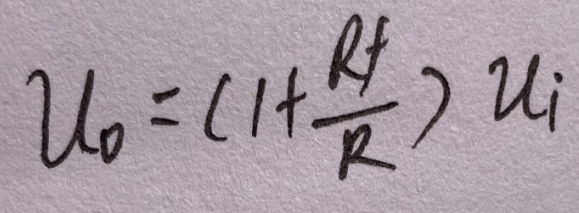 U₀ = (1 + Rf/R) Uᵢ